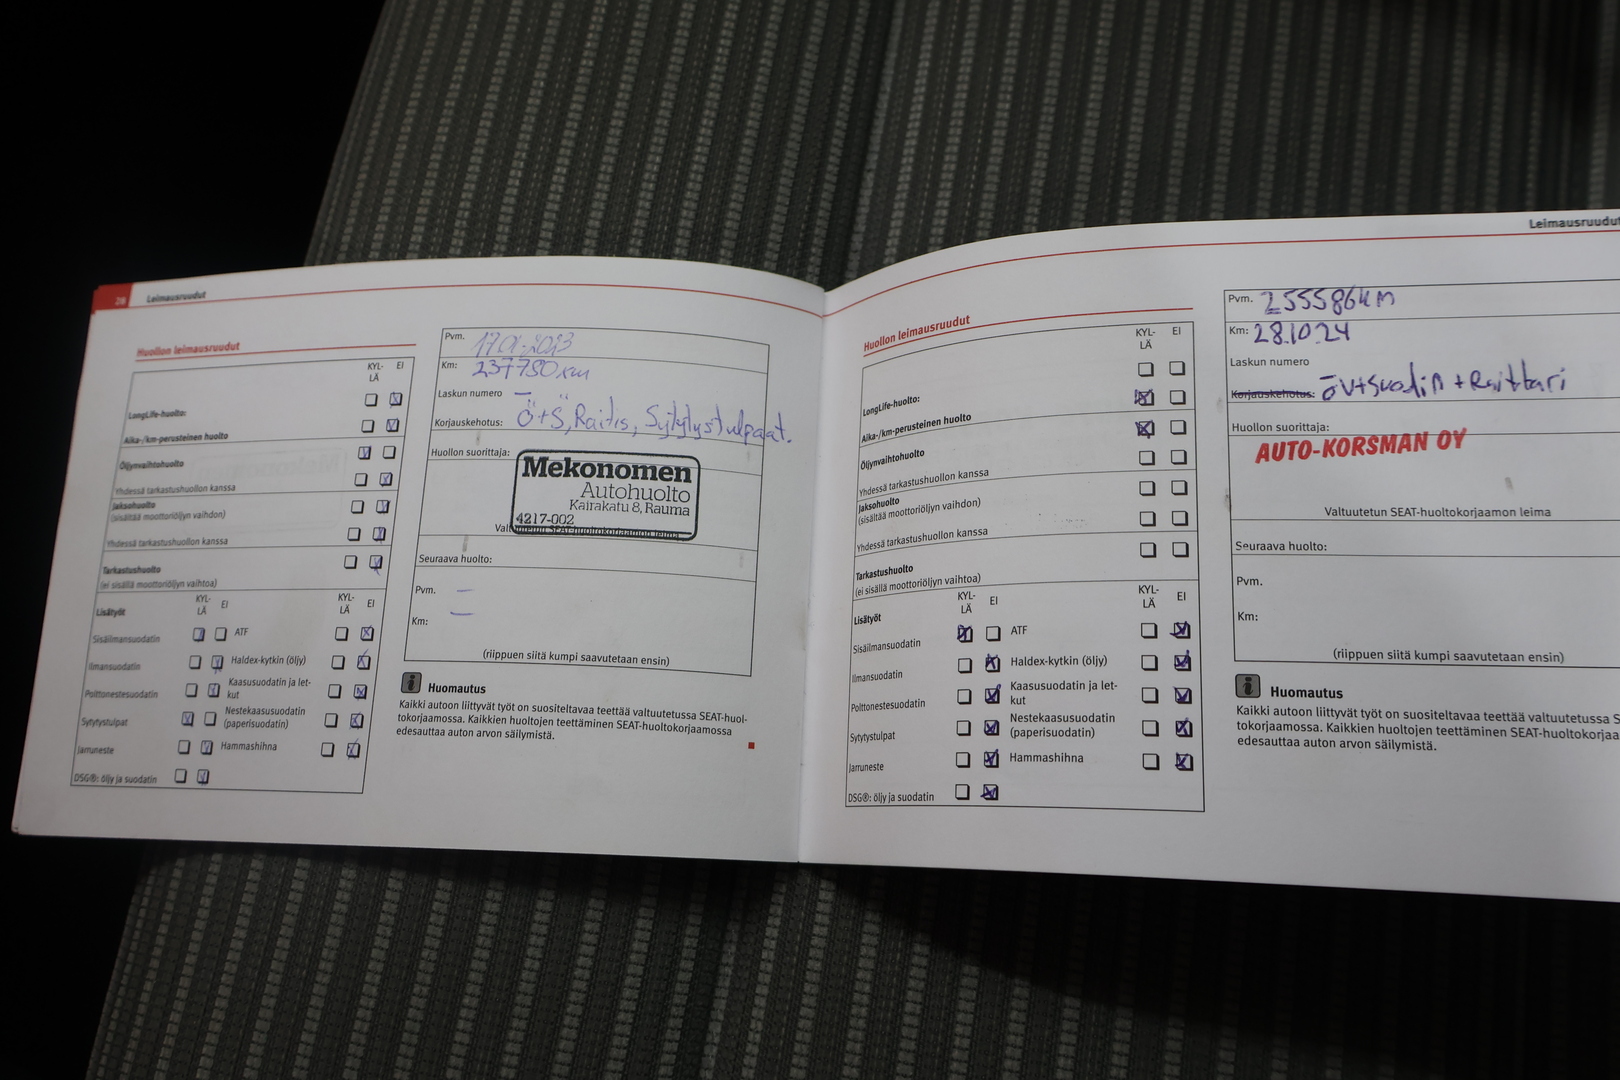 28 Leimausruudut
Huollon leimausruudut
KYL-
LÄ EI
LongLife-huolto:
Aika-/km-perusteinen huolto
Öljynvaihtohuolto
Yhdessä tarkastushuollon kanssa
Jaksohuolto
(sisältää moottoriöljyn vaihdon)
Yhdessä tarkastushuollon kanssa
Tarkastushuolto
(ei sisällä moottoriöljyn vaihtoa)
Lisätyöt KYL-
LÄ EI KYL-
LÄ EI
Sisäilmansuodatin ATF
Ilmansuodatin Haldex-kytkin (öljy)
Polttonestesuodatin Kaasusuodatin ja let-
kut
Sytytystulpat Nestekaasusuodatin
(paperisuodatin)
Jarruneste Hammashihna
DSG®: öljy ja suodatin
Pvm. 17.01.2023
Km: 237780 km
Laskun numero –
Korjauskehotus: Ö+S, Raitis, Sytytystulpaat.
Huollon suorittaja:
Mekonomen
Autohuolto
Kairakatu 8, Rauma
4217-002
Valtuutetun SEAT-huoltokorjaamon leima
Seuraava huolto:
Pvm. –
Km: –
(riippuen siitä kumpi saavutetaan ensin)
i Huomautus
Kaikki autoon liittyvät työt on suositeltavaa teettää valtuutetussa SEAT-huol-
tokorjaamossa. Kaikkien huoltojen teettäminen SEAT-huoltokorjaamossa
edesauttaa auton arvon säilymistä.
Leimausruudut
Huollon leimausruudut
KYL-
LÄ EI
LongLife-huolto:
Aika-/km-perusteinen huolto
Öljynvaihtohuolto
Yhdessä tarkastushuollon kanssa
Jaksohuolto
(sisältää moottoriöljyn vaihdon)
Yhdessä tarkastushuollon kanssa
Tarkastushuolto
(ei sisällä moottoriöljyn vaihtoa)
Lisätyöt KYL-
LÄ EI KYL-
LÄ EI
Sisäilmansuodatin ATF
Ilmansuodatin Haldex-kytkin (öljy)
Polttonestesuodatin Kaasusuodatin ja let-
kut
Sytytystulpat Nestekaasusuodatin
(paperisuodatin)
Jarruneste Hammashihna
DSG®: öljy ja suodatin
Pvm. 255586km
Km: 28.10.24
Laskun numero
Korjauskehotus: öv+suodin + Raitbari
Huollon suorittaja:
AUTO-KORSMAN OY
Valtuutetun SEAT-huoltokorjaamon leima
Seuraava huolto:
Pvm.
Km:
(riippuen siitä kumpi saavutetaan ensin)
i Huomautus
Kaikki autoon liittyvät työt on suositeltavaa teettää valtuutetussa S
tokorjaamossa. Kaikkien huoltojen teettäminen SEAT-huoltokorjaa
edesauttaa auton arvon säilymistä.